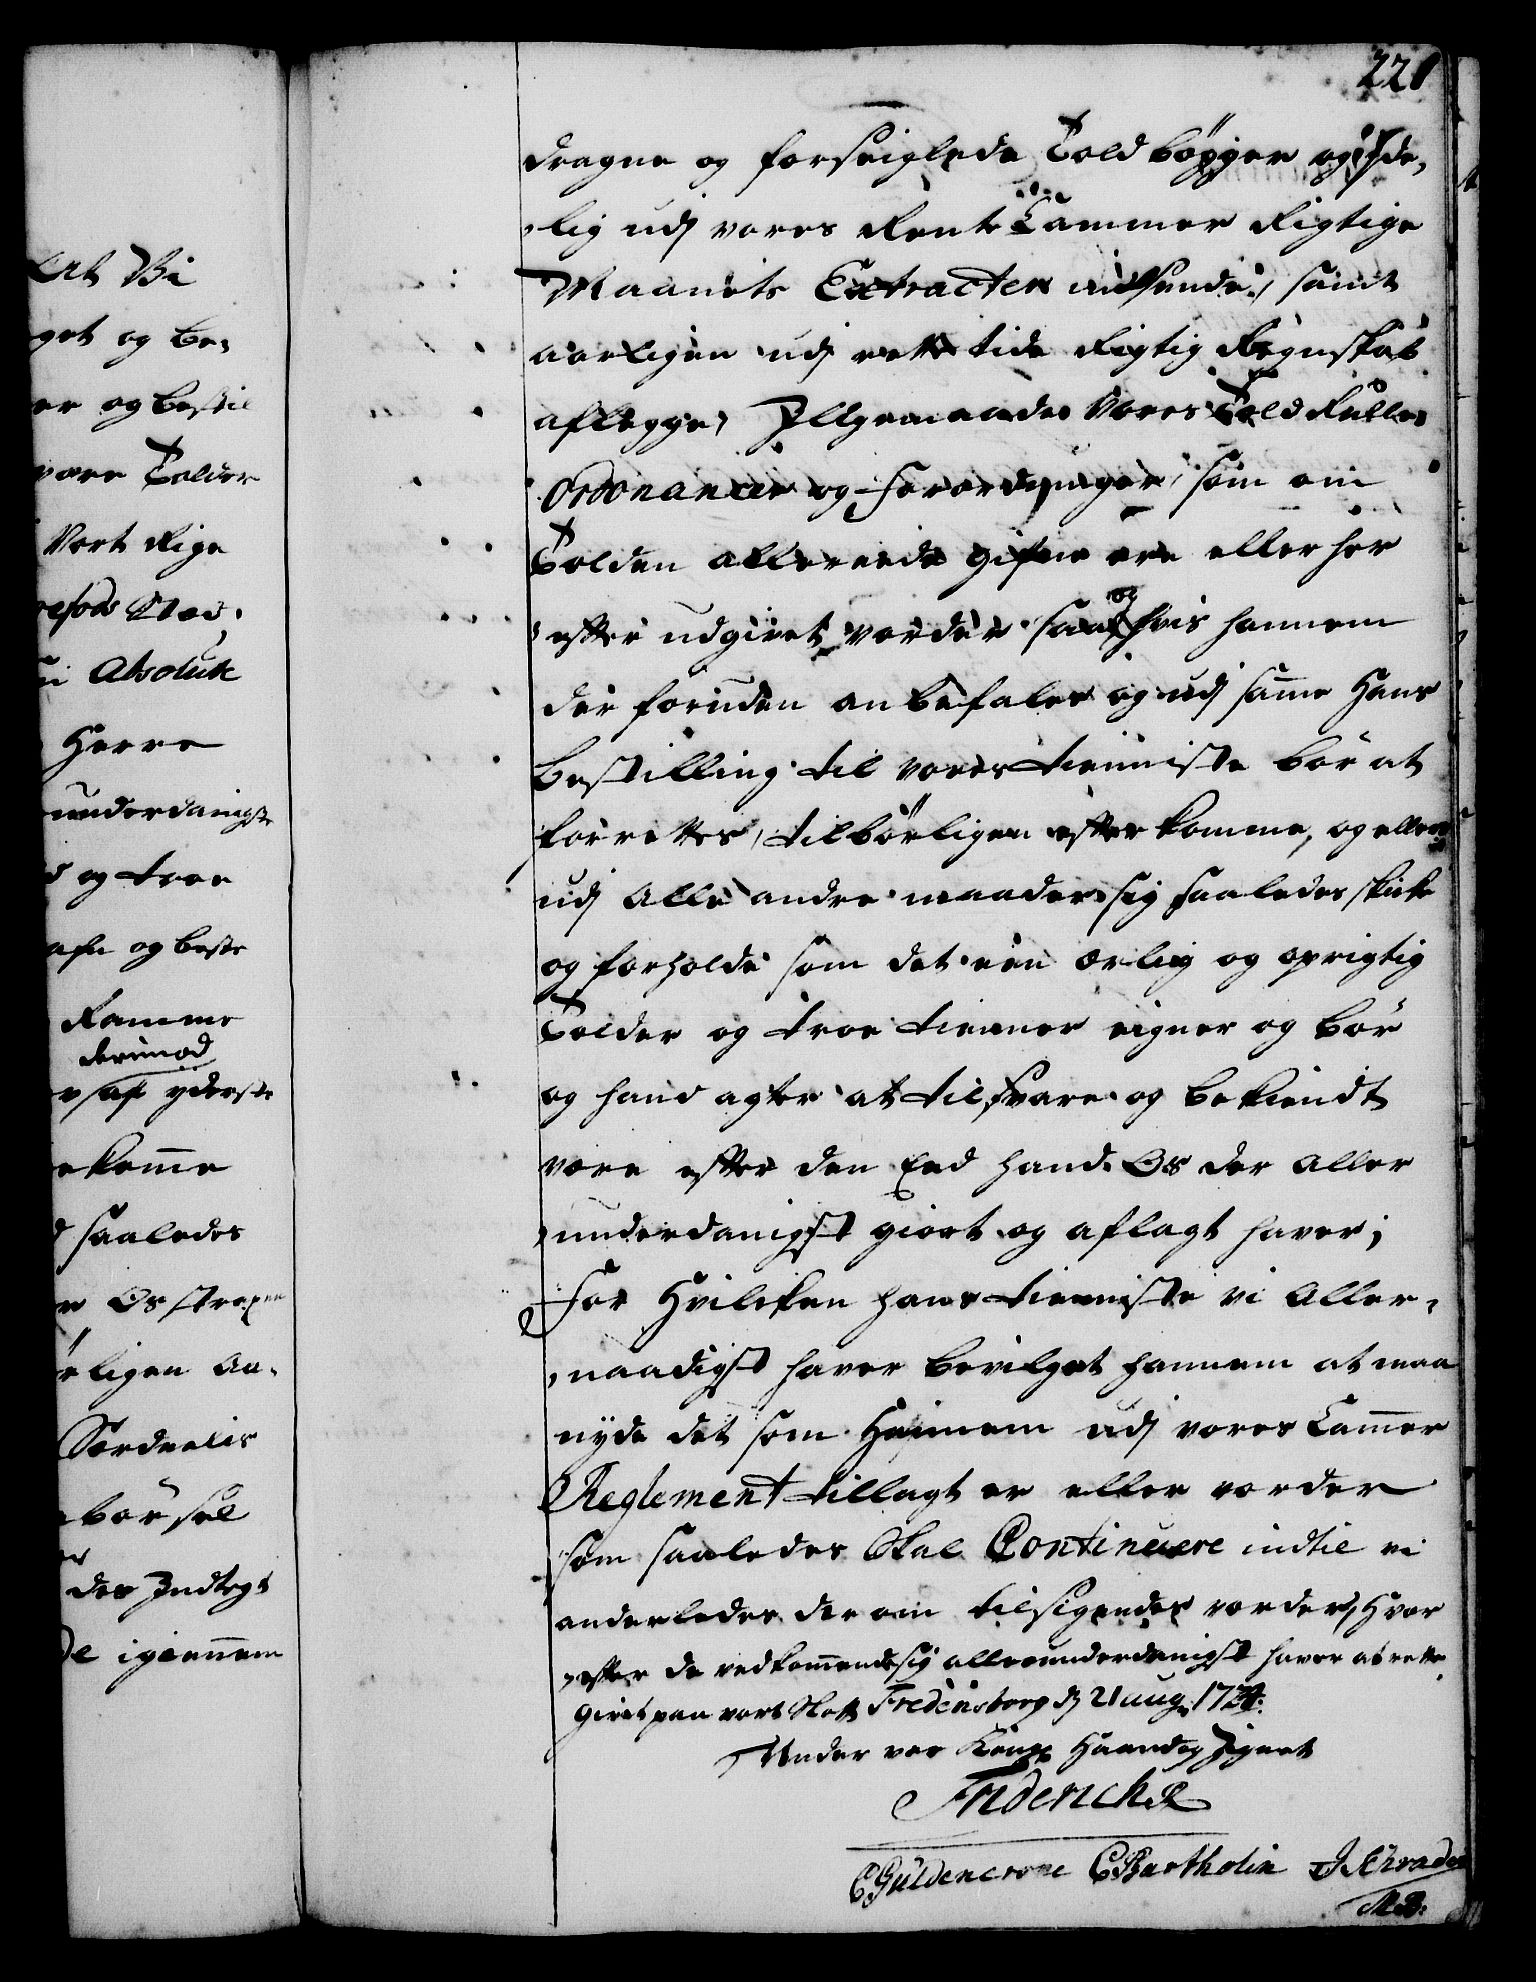 221
dragne og forseiglede Toldbøgger og
lig udj vores Rente Cammer Rigtige
Maanets Extracter indsende, samt
aarligen udj rette tide Rigtig Regnskab
aflegge, Ifligemaade Vores Told Rulle
Ordonancer og Forordninger, som om
Tolden allereede gifne ere eller her
efter udgivet vorder saa og hvis hannem
der foruden anbefales og udj samme Hans
bestilling til vores tienniste bør at
forrettes, tilbørligen efterkomme, og ellers
udj Alle andre maader sig saaledes skicke
og forholde som det een ærlig og oprigtig
Tolder og troe tienner eigner og bør
og hand agter at tilsvare og bekiendt
være efter den Eed hand Os der Aller
underdanigst giort og aflagt haver;
For Hvilcken hans tienniste vi Aller-
naadigst haver bevilget hannem at maa
nyde det som Hannem udj vores Cammer
Reglement tillagt er eller vorder
som saaledes Skal Continuere indtil vi
anderledes der om tilsigendes vorder, Hvor
efter de vedkommende sig allerunderdanigst haver at rette
Givet paa vort Slott Fredensborg d 21 aug:
Under vor Kongl Haand og Zignet
Friderich R
C Güldencrone C Bartholin J Schrader
At Vi
get og be-
er og bestil
være Tolder
Vort Rige
Sted.
Absolute
Herre
underdanigste
og troe
og beste
Ramme
derimod
af yderste
ekomme
saaledes
Os strax
rligen an-
Særdeelis
bør sel
der Indtegt
igiennem